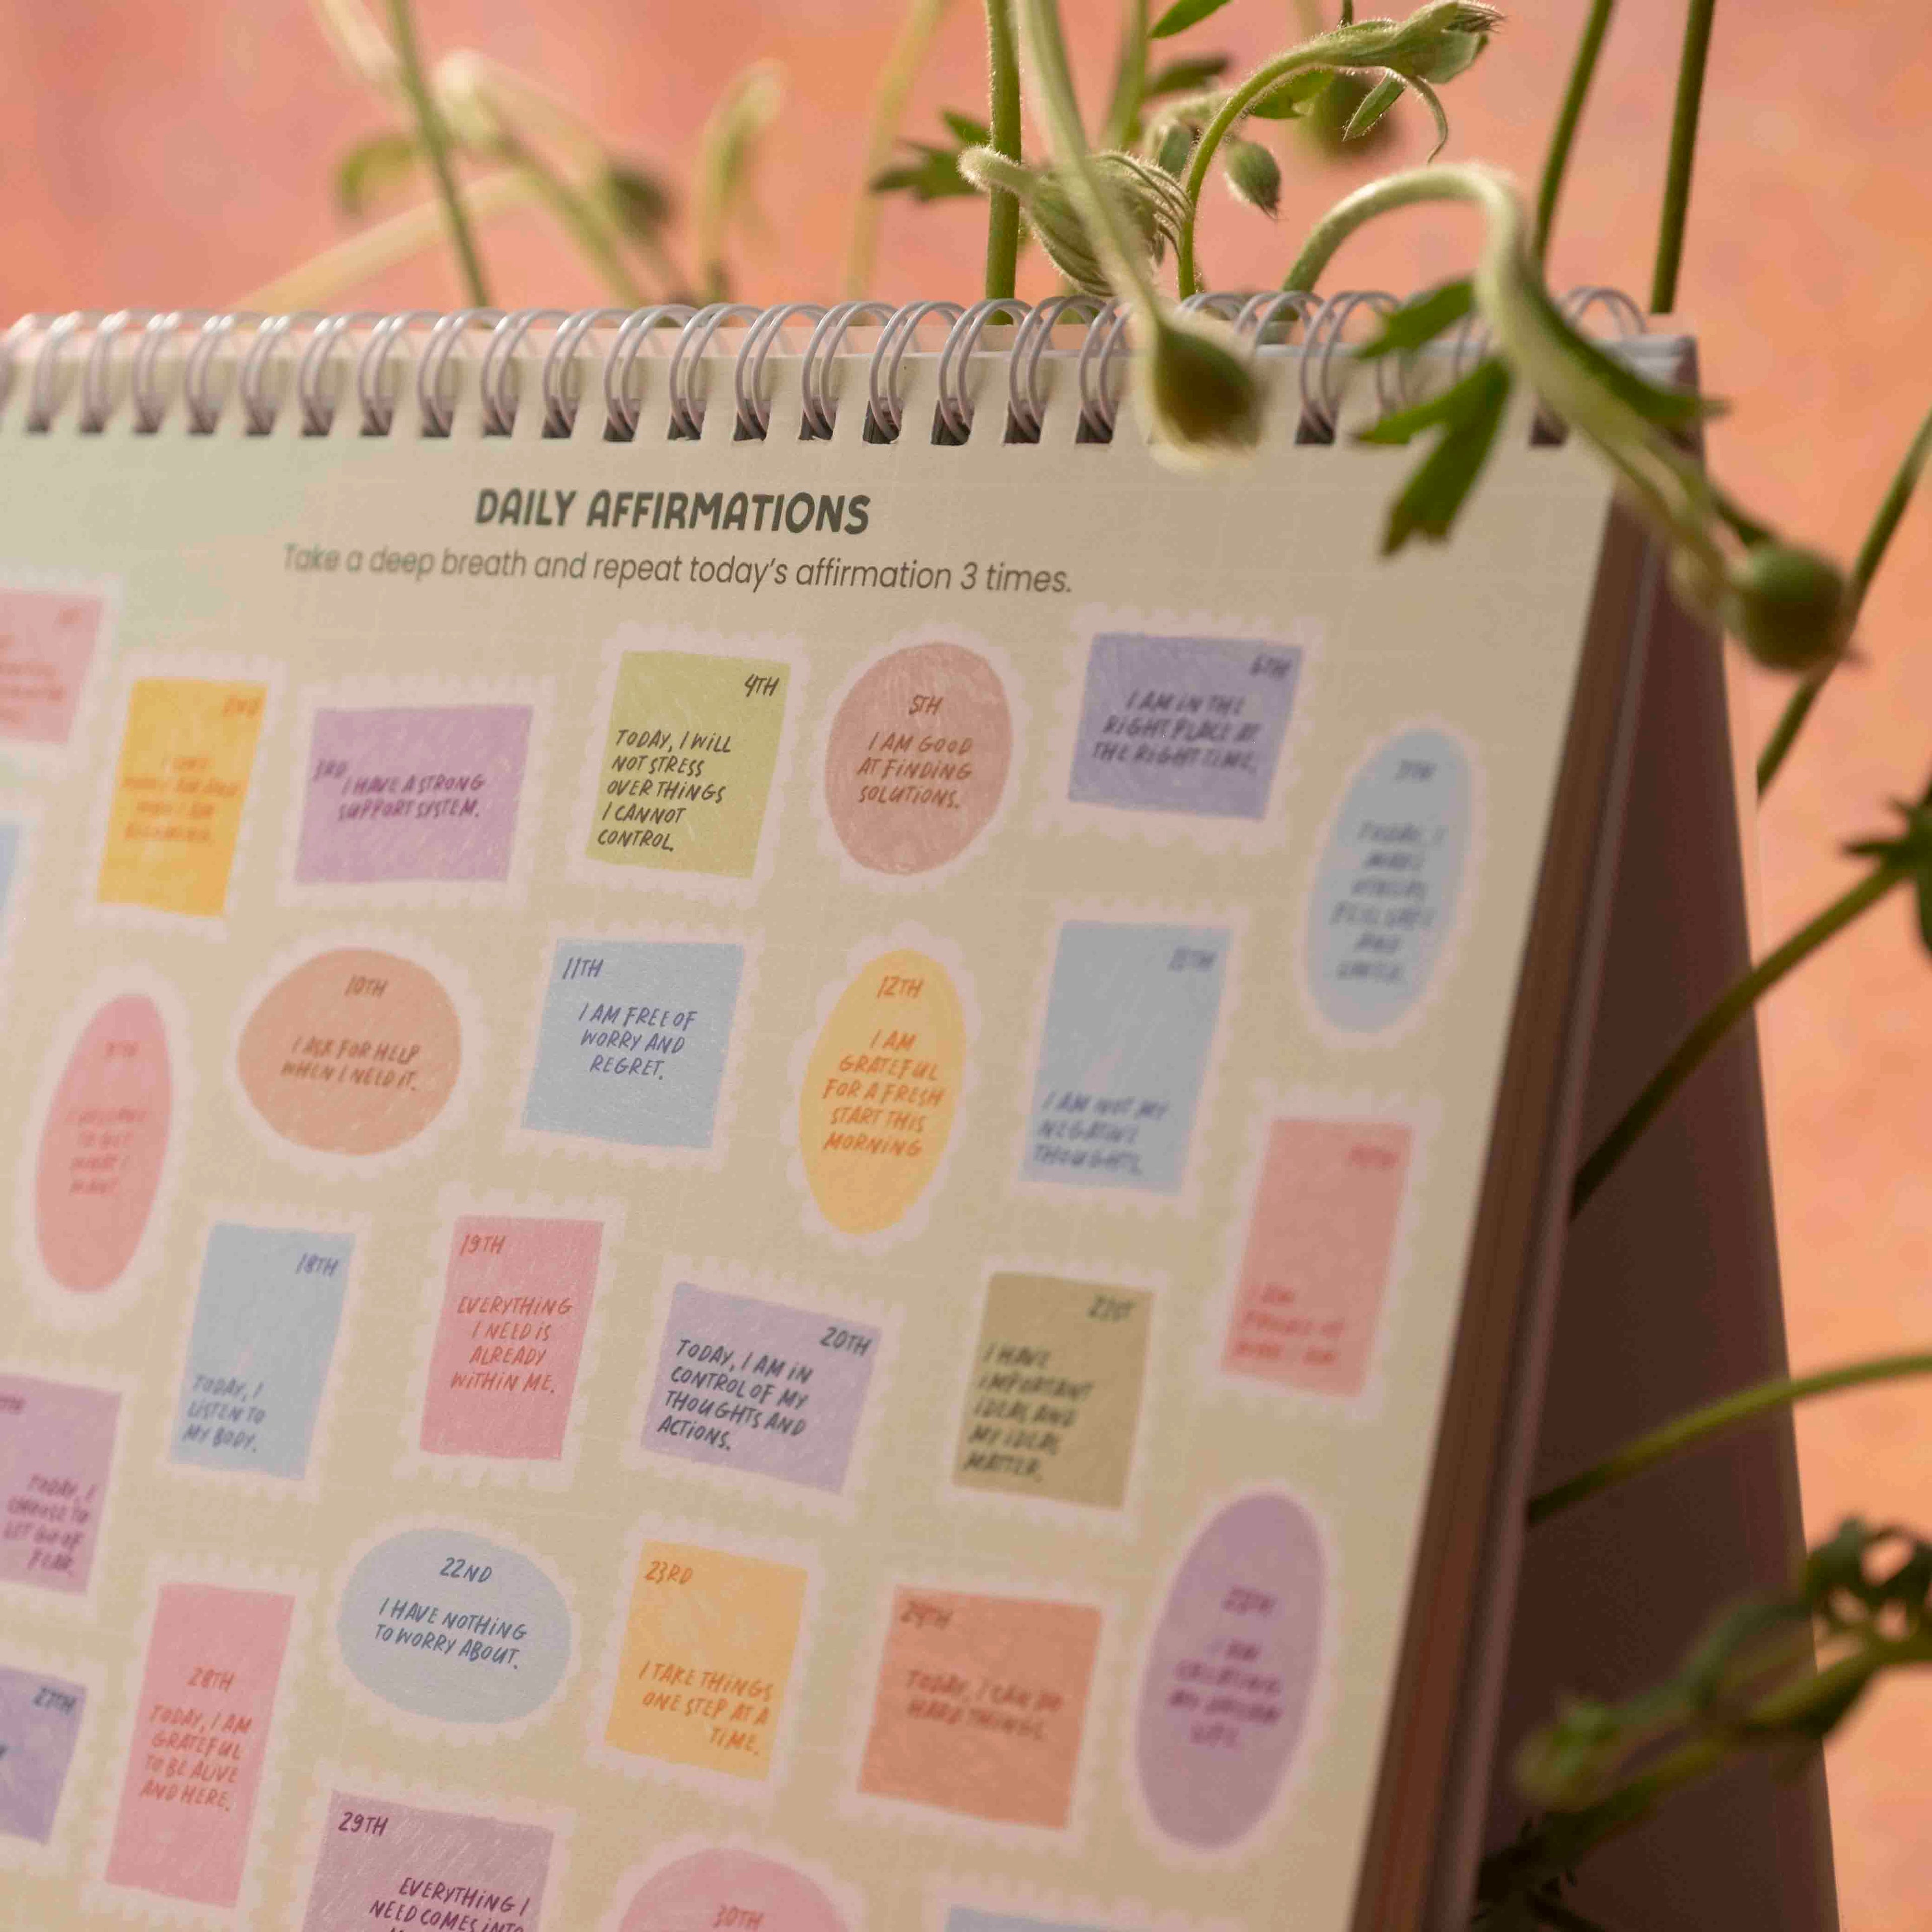 DAILY AFFIRMATIONS
Take a deep breath and repeat today's affirmation 3 times.
2ND
3RD
I HAVE A STRONG
SUPPORT SYSTEM.
4TH
TODAY, I WILL
NOT STRESS
OVER THINGS
I CANNOT
CONTROL.
5TH
I AM GOOD
AT FINDING
SOLUTIONS.
6TH
I AM IN THE
RIGHT PLACE AT
THE RIGHT TIME.
7TH
TODAY, I
MAKE
OTHERS
AND
SMILE.
9TH
TO GET
WHAT I
WANT.
10TH
I ASK FOR HELP
WHEN I NEED IT.
11TH
I AM FREE OF
WORRY AND
REGRET.
12TH
I AM
GRATEFUL
FOR A FRESH
START THIS
MORNING
I AM NOT MY
NEGATIVE
THOUGHTS.
I AM
WHO I AM
TODAY, I
CHOOSE TO
LET GO OF
FEAR.
18TH
TODAY, I
LISTEN TO
MY BODY.
19TH
EVERYTHING
I NEED IS
ALREADY
WITHIN ME.
20TH
TODAY, I AM IN
CONTROL OF MY
THOUGHTS AND
ACTIONS.
21ST
I HAVE
IMPORTANT
IDEAS AND
MY IDEAS
MATTER.
22ND
I HAVE NOTHING
TO WORRY ABOUT.
23RD
I TAKE THINGS
ONE STEP AT A
TIME.
24TH
TODAY, I CAN DO
HARD THINGS.
25TH
I AM
CREATING
MY DREAM
LIFE.
27TH
28TH
TODAY, I AM
GRATEFUL
TO BE ALIVE
AND HERE.
29TH
EVERYTHING I
NEED COMES INTO
30TH